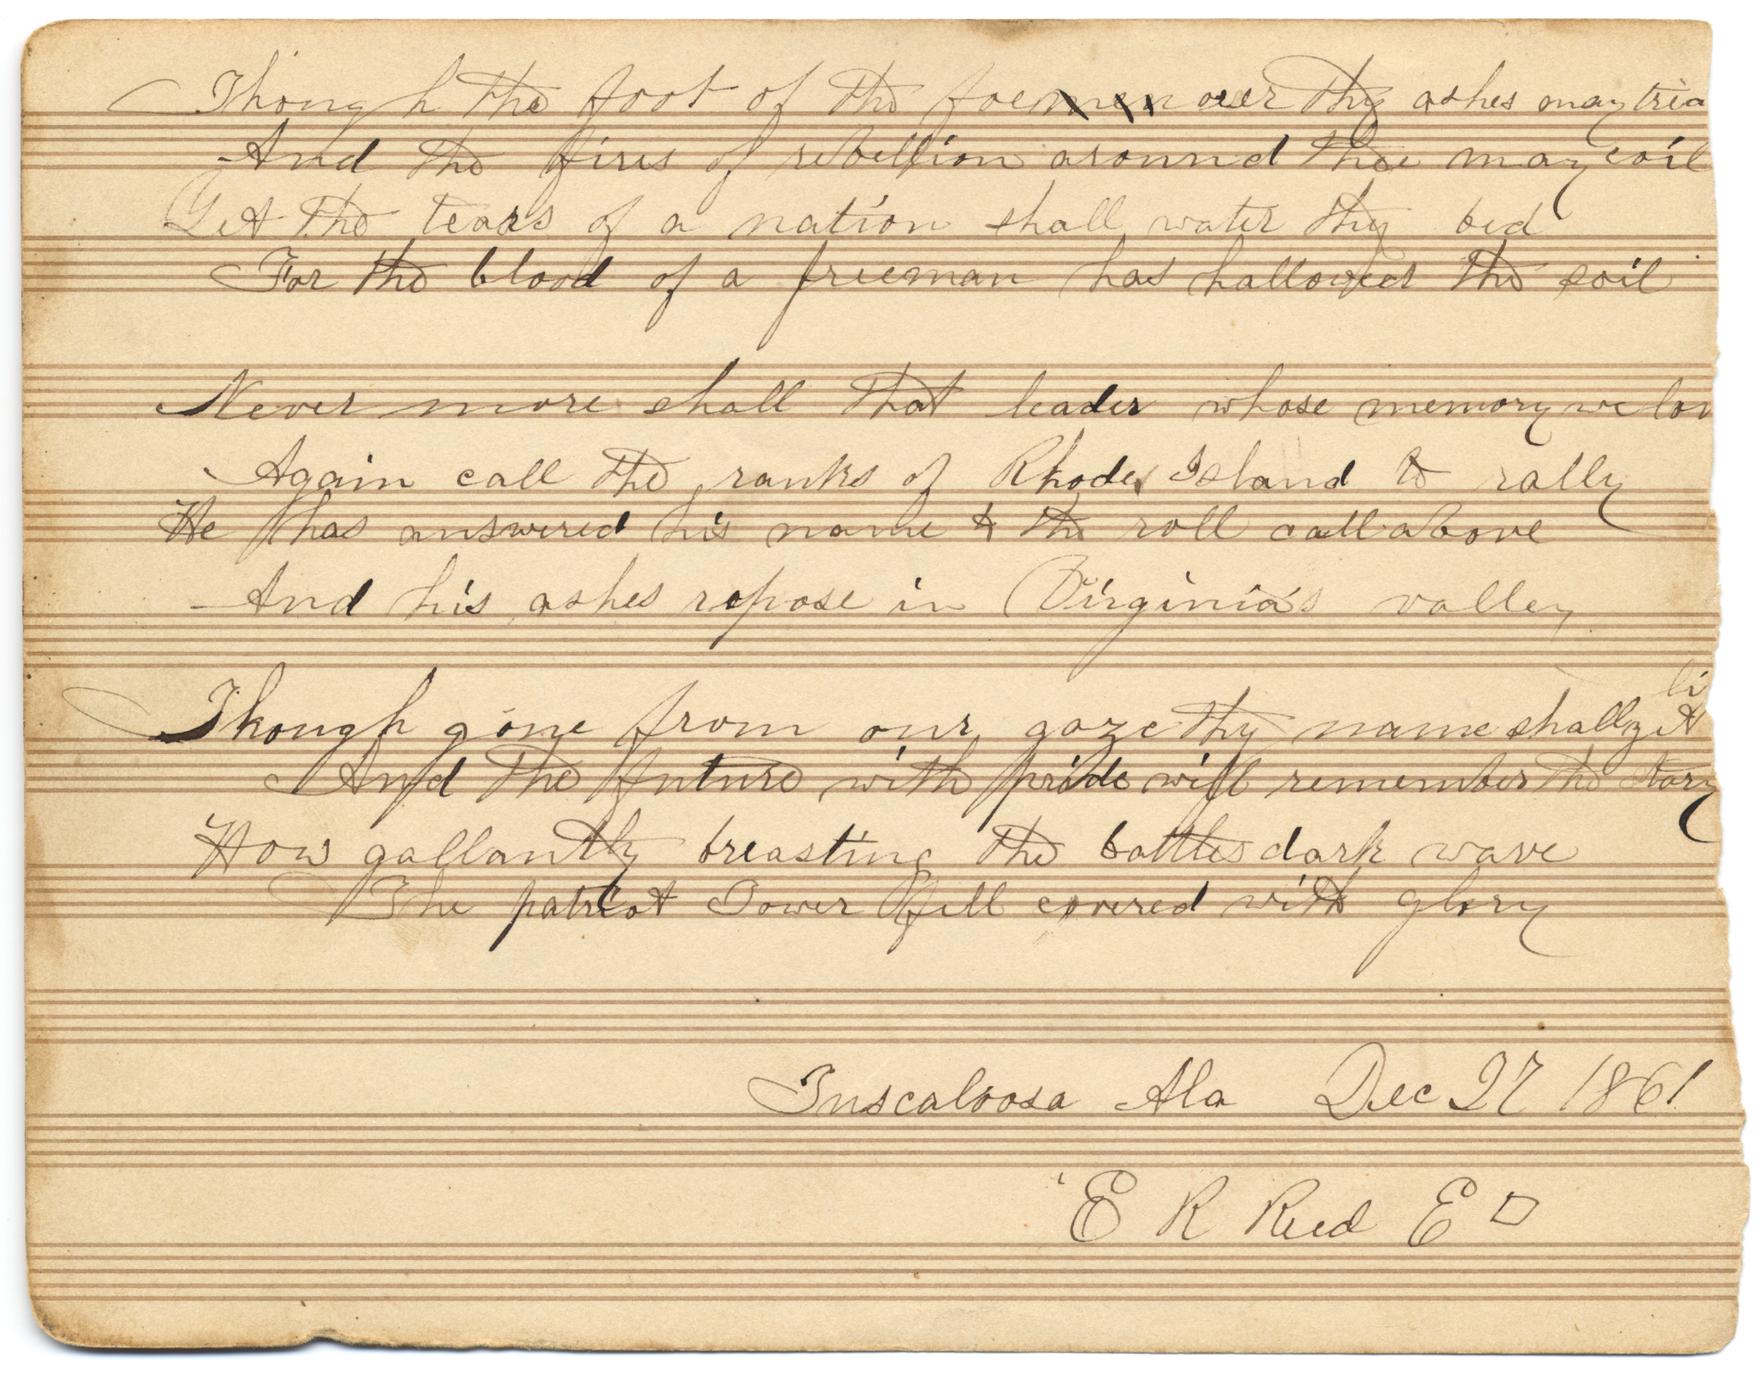 Though the foot of the foe over thy ashes may trea
And the fires of rebellion around thee may coil
Yet the tears of a nation shall water thy bed
For the blood of a freeman has hallowed the soil
Never more shall that leader whose memory we lov
Again call the ranks of Rhode Island to rally
He has answered his name to the roll call above
And his ashes repose in Virginia's valley
Though gone from our gaze thy name shall yet li
And the future with pride will remember the story
How gallantly breasting the battles dark wave
The patriot Tower fell covered with glory
Tuscaloosa Ala Dec 27 1861
E R Reed E □